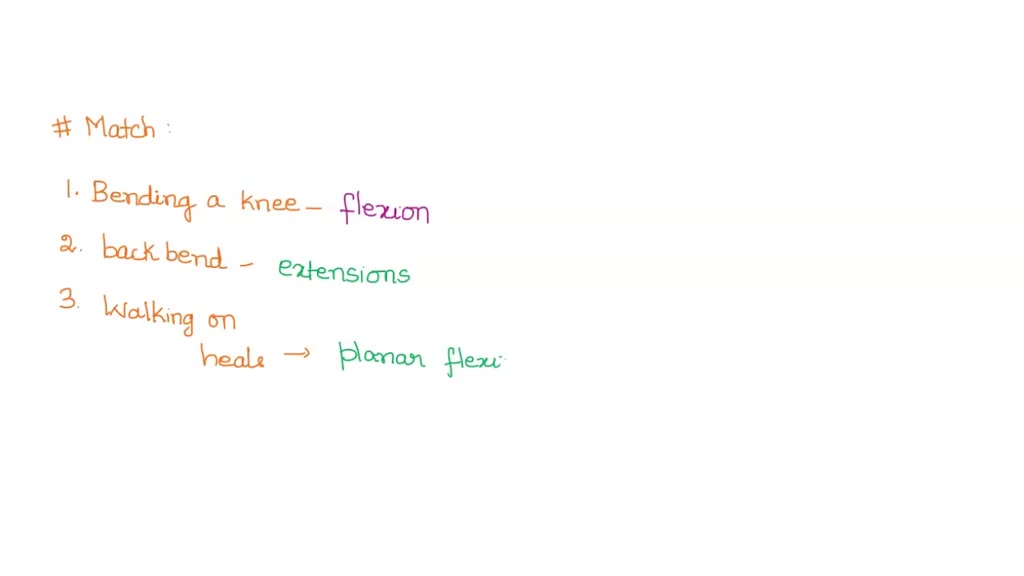 # Match :
1. Bending a knee – flexion
2. back bend – extensions
3. Walking on
heals → planar flexi